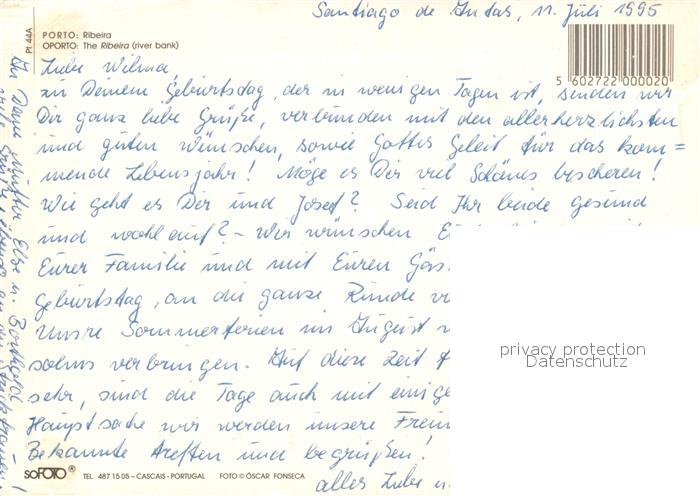 Santiago de Judas, 11. Juli 1995
Pt 44A
PORTO: Ribeira
OPORTO: The Ribeira (river bank)
5 602722 000020
Liebe Wilma
zu Deinem Geburtstag, der in wenigen Tagen ist, senden wir
Dir ganz liebe Grüße, verbunden mit den allerherzlichsten
und guten Wünschen, sowie Gottes Geleit für das kom=
mende Lebensjahr! Möge es Dir viel Schönes bescheren!
Wie geht es Dir und Josef? Seid Ihr beide gesund
und wohlauf? - Wir wünschen
Eurer Familie und mit Euren
Geburtstag, an die ganze Runde
Unsre Sommerferien im August
verbringen. Auf diese Zeit
sehr, sind die Tage auch mit
Hauptsache wir werden unsere
Bekannte treffen und begrüßen!
alles Liebe u.
An Deine Mutter, Else u. Berthold
privacy protection
Datenschutz
soFOTO ® TEL. 487 15 05 – CASCAIS - PORTUGAL FOTO © ÓSCAR FONSECA